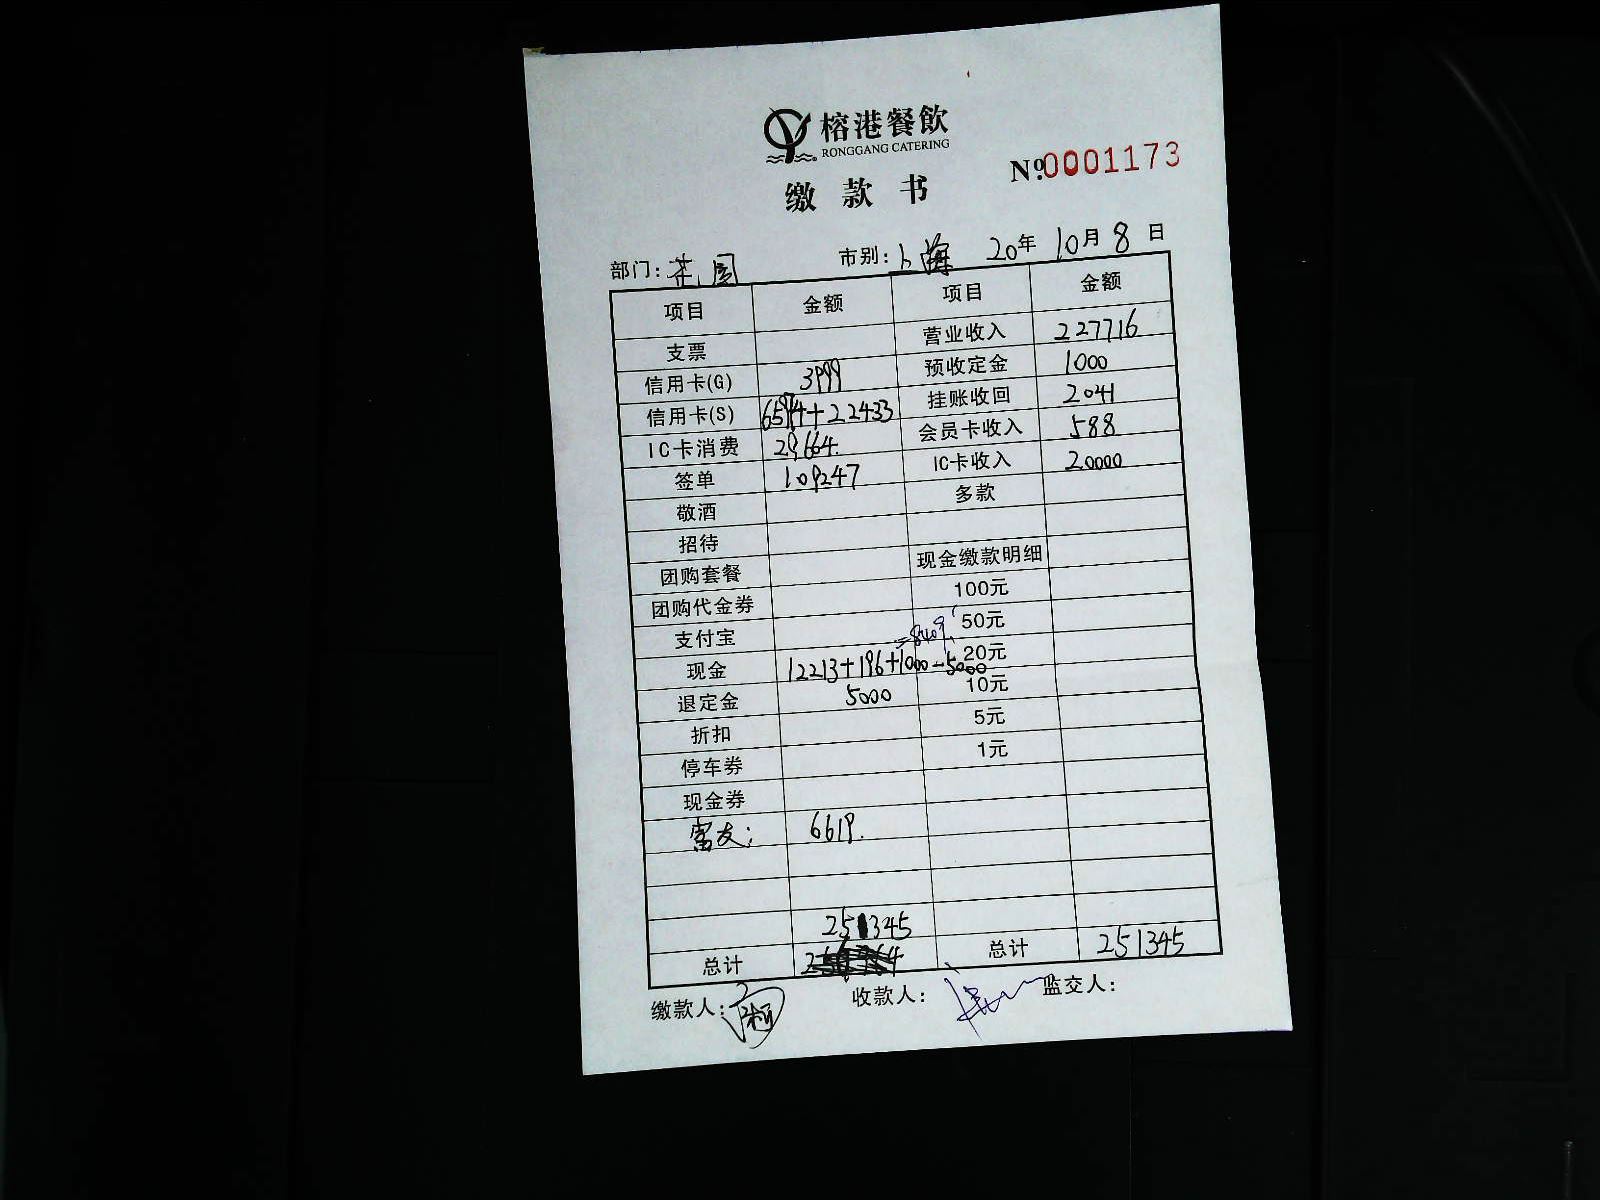 榕港餐飲
RONGGANG CATERING
缴 款 书
№0001173
部门: 花园 市别: 上海 20年 10月 8日
项目 金额 项目 金额
支票 营业收入 227716
信用卡(G) 3999 预收定金 1000
信用卡(S) +22433 挂账收回 2041
IC卡消费 29664. 会员卡收入 588
签单 109247 IC卡收入 20000
敬酒 多款
招待
团购套餐 现金缴款明细
团购代金券 100元
支付宝 =8409 50元
现金 12213+196+1000-5000 20元
退定金 5000 10元
折扣 5元
停车券 1元
现金券
富友: 6619.
251345
总计 总计 251345
缴款人: 收款人: 监交人: